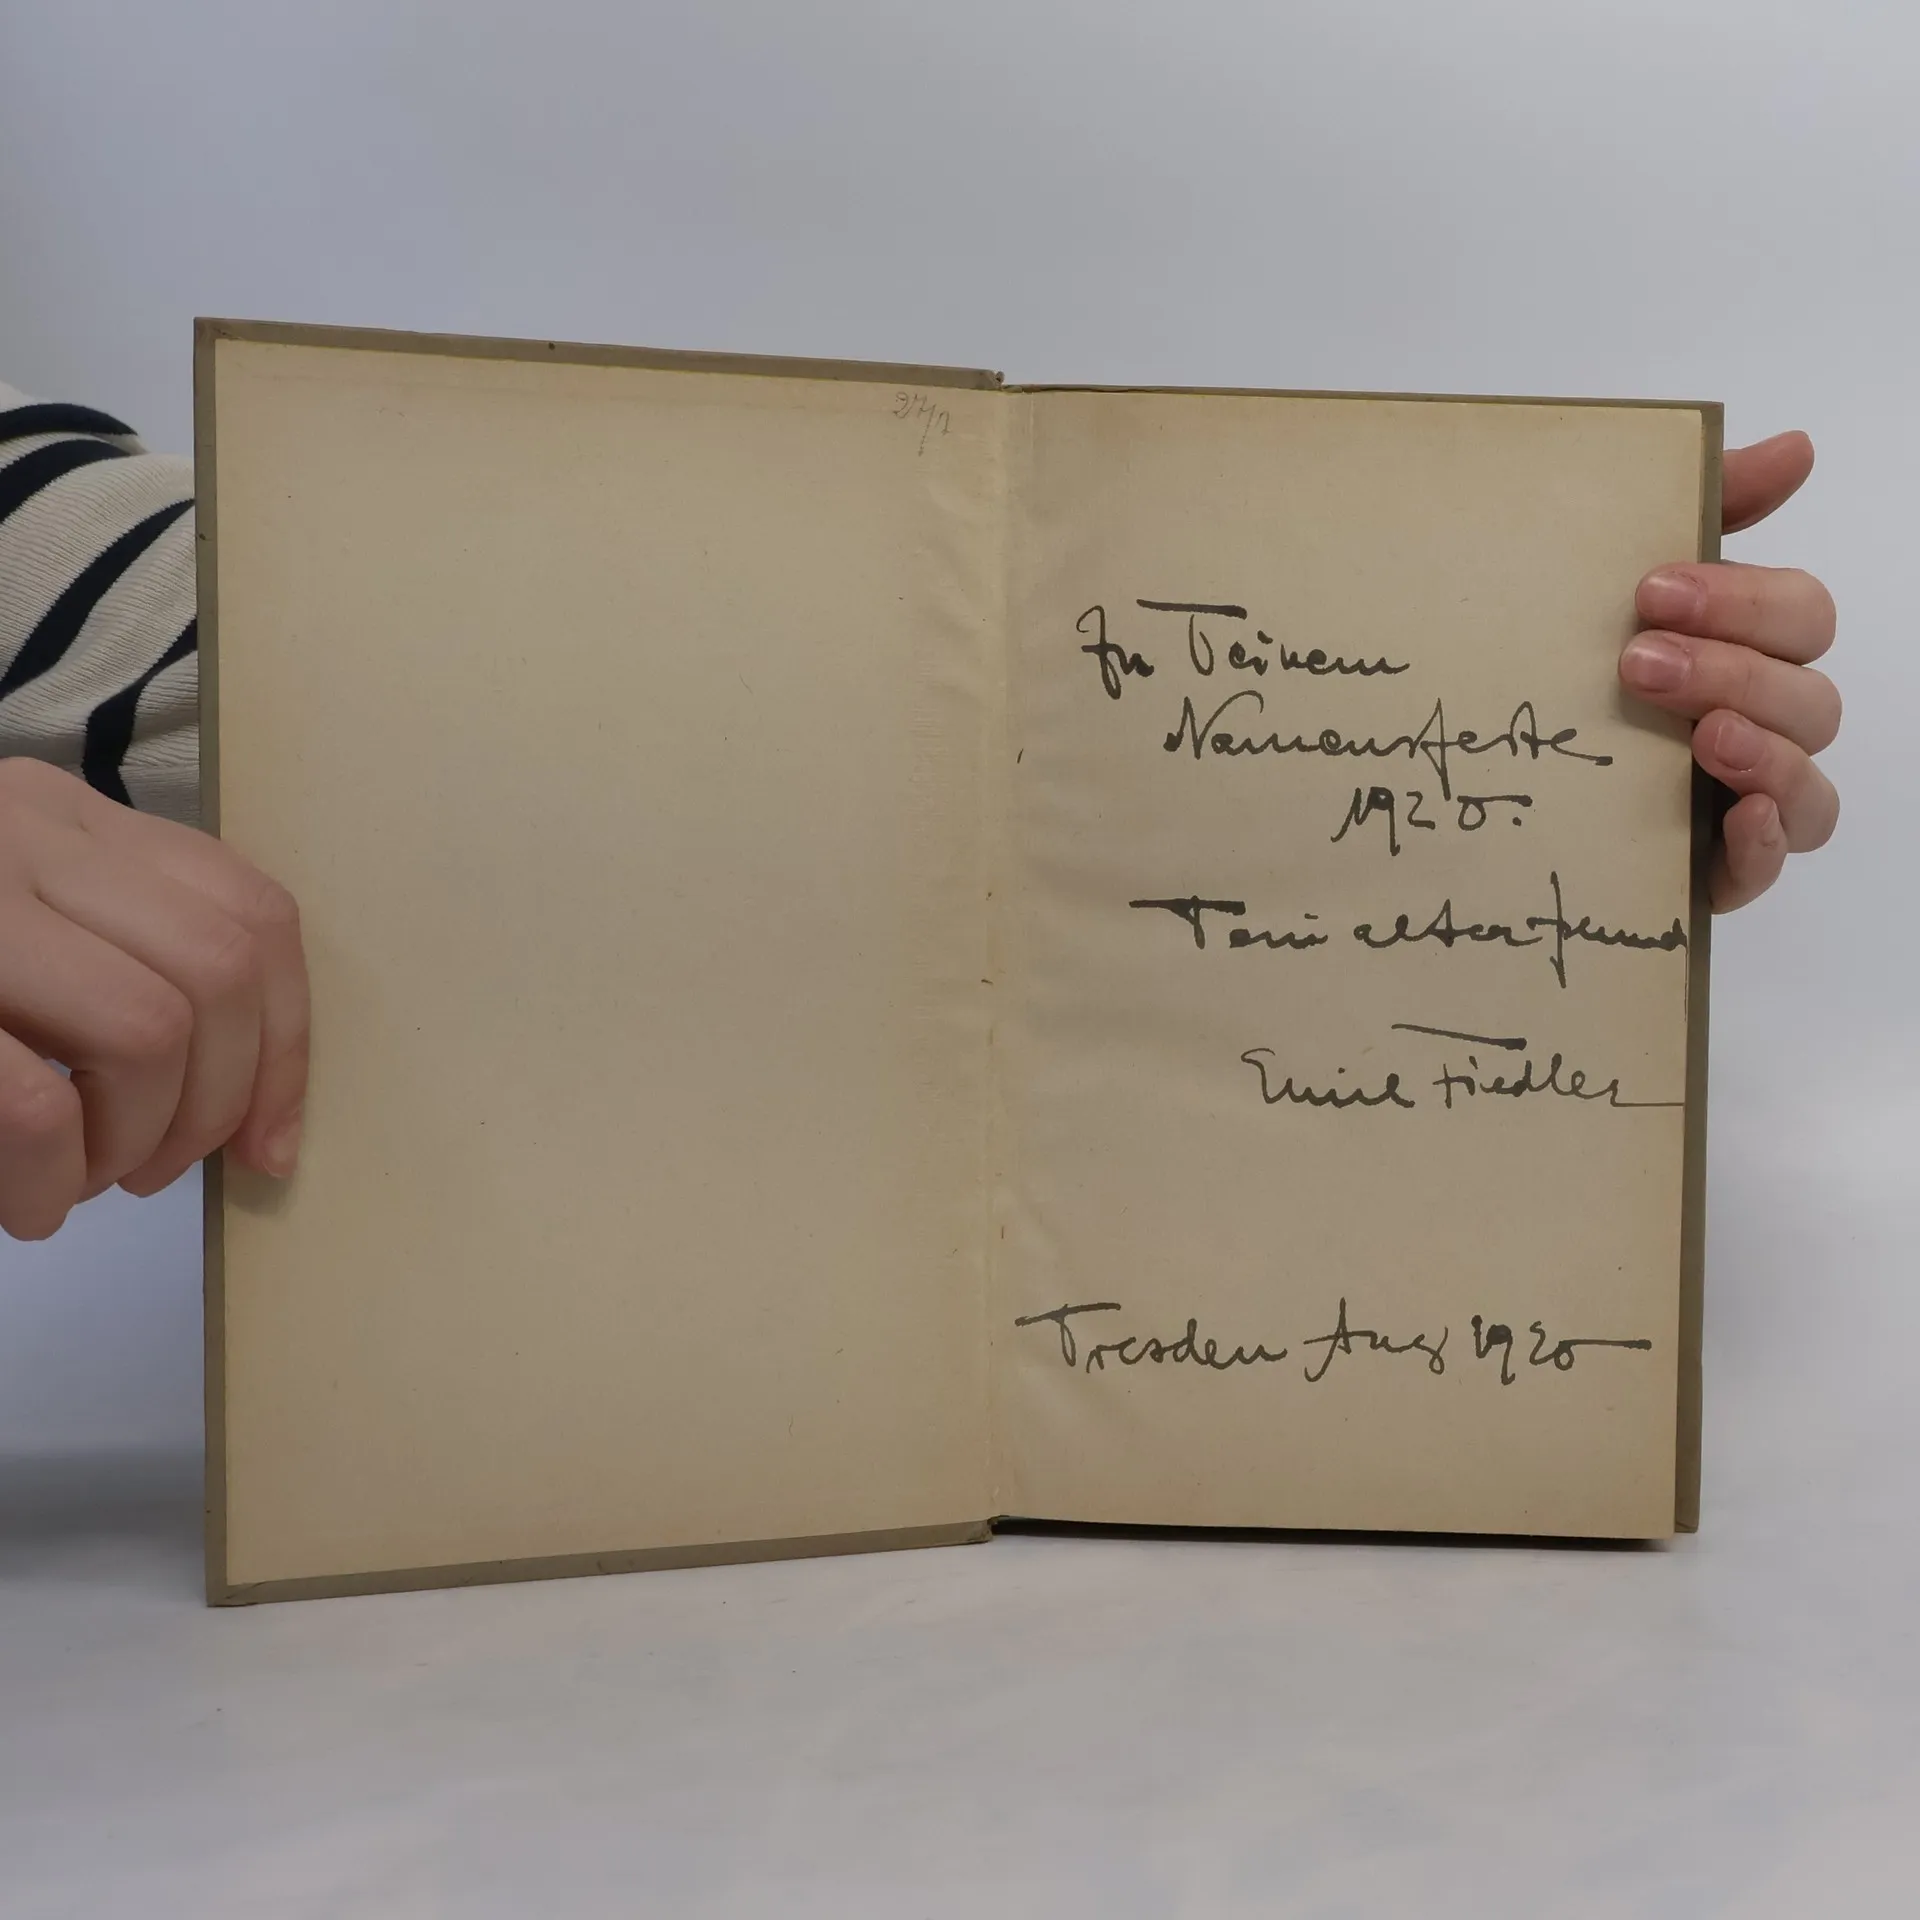 27/1
Zu Deinem
Namensfeste
1920.
Dein alter Freund
Emil Fiedler
Dresden Aug 1920